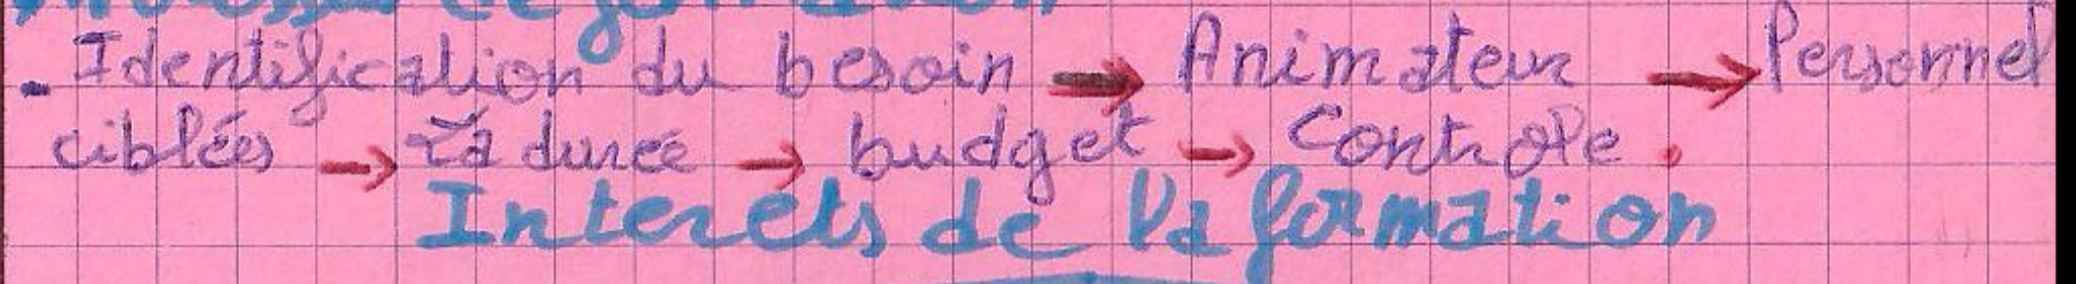 de formation
- Identification du besoin → Animateur → Personnel
ciblées → La durée → budget → Contrôle.
Interets de la formation